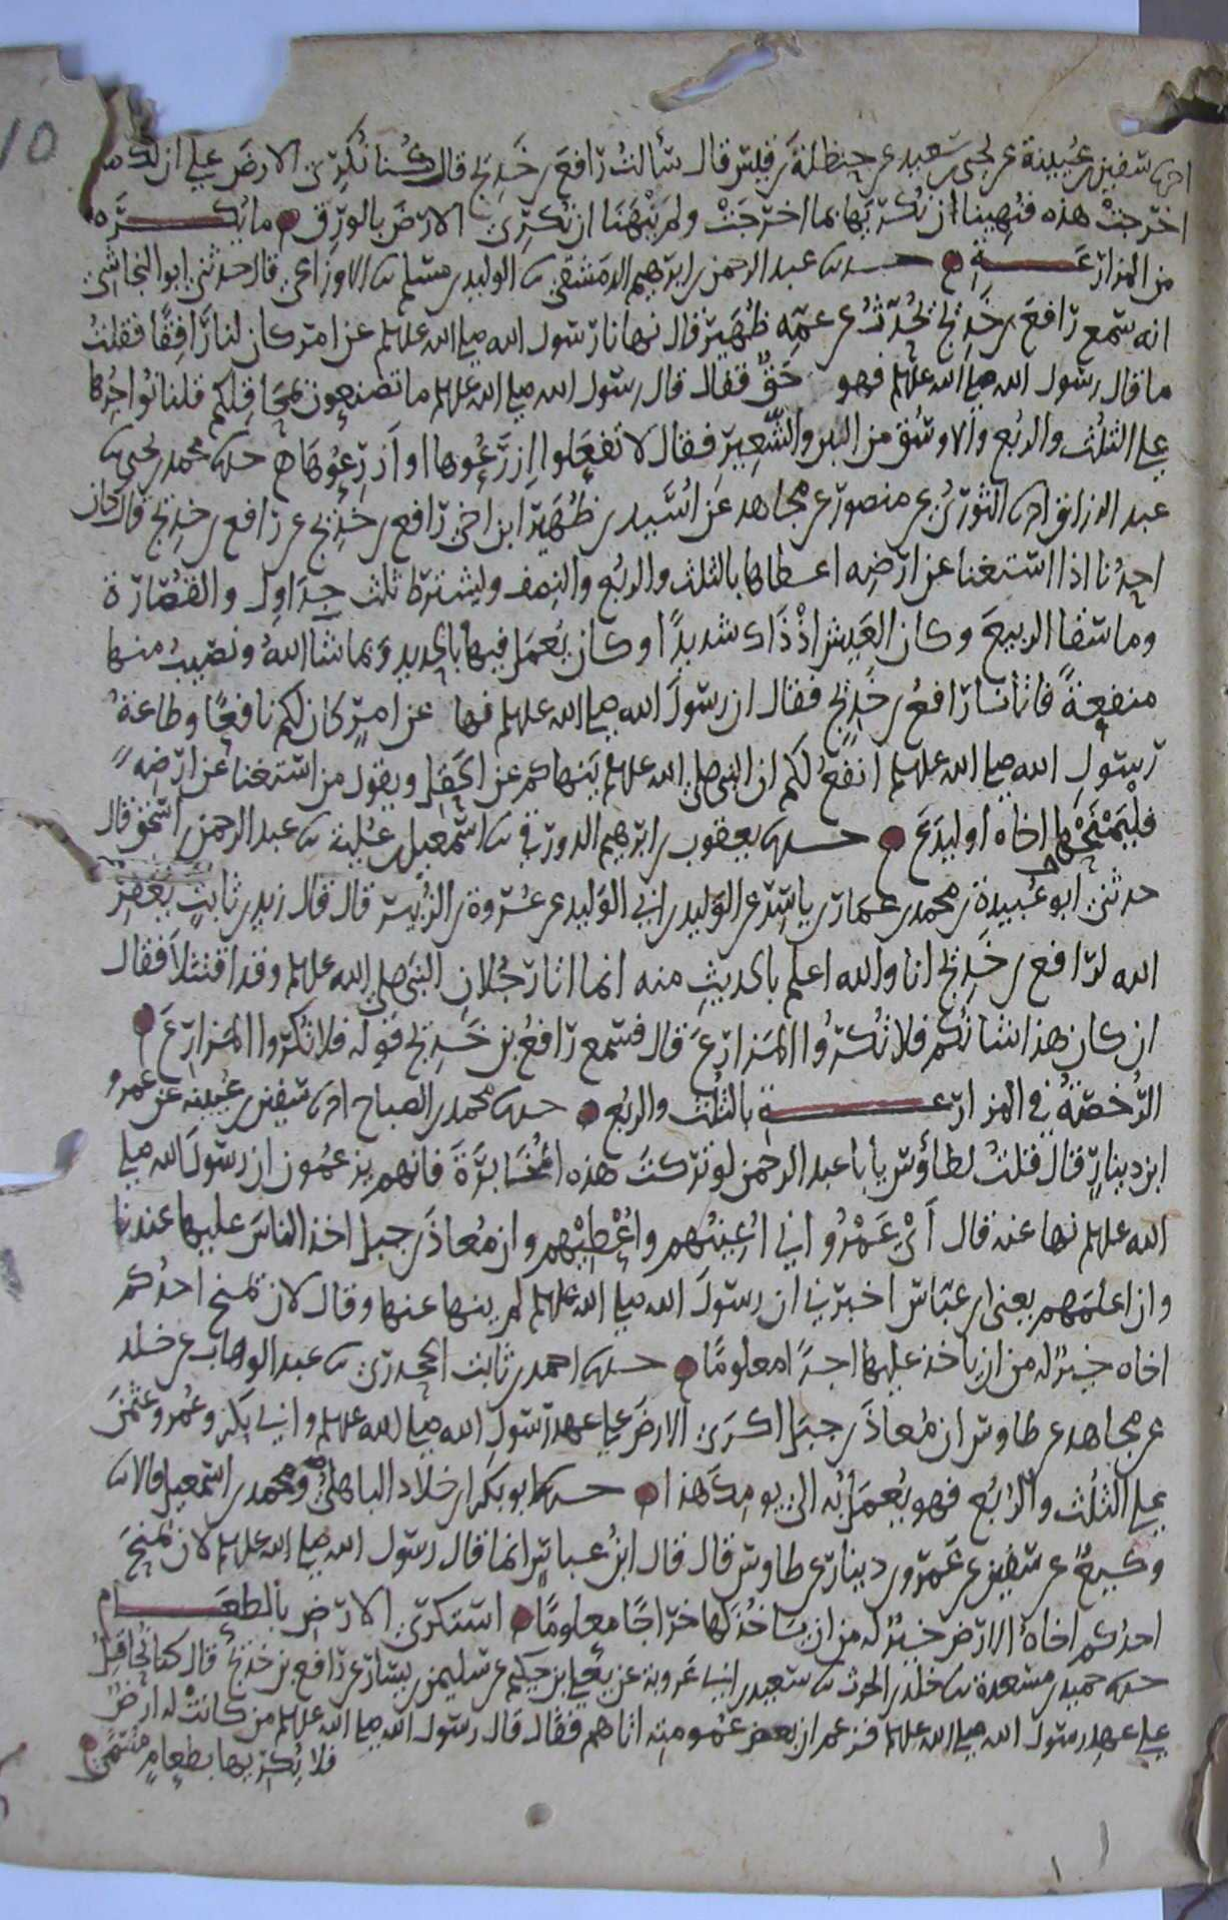 اخبرنا سفين بن عيينة عن يحيى بن سعيد عن حنظلة بن قيس قال سألت رافع بن خديج قال كنا نكرى الارض على ان لك ما
اخرجت هذه فنهينا ان نكريها بما اخرجت ولم ينهنا ان نكرى الارض بالورق ما يكره
من المزارعة حدثنا عبد الرحمن بن ابرهيم الدمشقى ثنا الوليد بن مسلم ثنا الاوزاعى قال حدثنى ابو النجاشى
انه سمع رافع بن خديج يحدث عن عمه ظهير قال نهانا رسول الله صلى الله عليه وسلم عن امر كان لنا رافقا فقلت
ما قال رسول الله صلى الله عليه وسلم فهو حق فقال قال رسول الله صلى الله عليه وسلم ما تصنعون بمحاقلكم قلنا نواجرها
على الثلث والربع والاوسق من البر والشعير فقال لا تفعلوا ازرعوها او ازرعوها حدثنا محمد بن يحيى ثنا
عبد الرزاق اخبرنا الثورى عن منصور عن مجاهد عن اسيد بن ظهير ابن اخى رافع بن خديج عن رافع بن خديج قال كان
احدنا اذا استغنا عن ارضه اعطاها بالثلث والربع والنصف ويشترط ثلث جداول والقصارة
وما سقا الربيع وكان العيش اذ ذاك شديدا وكان يعمل فيها بالحديد وبما شا الله ونصيب منها
منفعة فاتانا رافع بن خديج فقال ان رسول الله صلى الله عليه وسلم نها عن امر كان لكم نافعا وطاعة
رسول الله صلى الله عليه وسلم انفع لكم ان النبى صلى الله عليه وسلم ينهاكم عن الحقل ويقول من استغنا عن ارضه
فليمنحها اخاه او ليدع حدثنا يعقوب بن ابرهيم الدورقى ثنا اسمعيل بن علية ثنا عبد الرحمن بن اسحق قال
حدثنى ابو عبيدة بن محمد بن عمار بن ياسر عن الوليد بن ابى الوليد عن عروة بن الزبير قال قال زيد بن ثابت يغفر
الله لرافع بن خديج انا والله اعلم بالحديث منه انما اتا رجلان النبى صلى الله عليه وسلم وقد اقتتلا فقال
ان كان هذا شانكم فلا تكروا المزارع قال فسمع رافع بن خديج قوله فلا تكروا المزارع
الرخصة فى المزارعة بالثلث والربع حدثنا محمد بن الصباح اخبرنا سفين بن عيينه عن عمرو
ابن دينار قال قلت لطاوس يا با عبد الرحمن لو تركت هذه المخابرة فانهم يزعمون ان رسول الله صلى
الله عليه وسلم نها عنه قال اى عمرو انى اعينهم واعطيهم وان معاذ بن جبل اخذ الناس عليها عندنا
وان اعلمهم يعنى ابن عباس اخبرنى ان رسول الله صلى الله عليه وسلم لم ينها عنها وقال لان يمنح احدكم
اخاه خير له من ان ياخذ عليها اجرا معلوما حدثنا احمد بن ثابت الجحدرى ثنا عبد الوهاب عن خلد
عن مجاهد عن طاوس ان معاذ بن جبل اكرى الارض على عهد رسول الله صلى الله عليه وسلم وابى بكر وعمر وعثمن
على الثلث والربع فهو يعمل به الى يومك هذا حدثنا ابو بكر ابن خلاد الباهلى ومحمد بن اسمعيل قالا ثنا
وكيع عن سفين عن عمرو بن دينار عن طاوس قال قال ابن عباس انما قال رسول الله صلى الله عليه وسلم لان يمنح
احدكم اخاه الارض خير له من ان ياخذ لها خراجا معلوما استكرى الارض بالطعام
حدثنا حميد بن مسعدة ثنا خلد بن الحرث ثنا سعيد بن ابى عروبة عن يعلى بن حكيم عن سليمن بن يسار عن رافع بن خديج قال كنا نحاقل
على عهد رسول الله صلى الله عليه وسلم فزعم ان بعض عمومته اتاهم فقال قال رسول الله صلى الله عليه وسلم من كانت له ارض
فلا يكريها بطعام مسمى